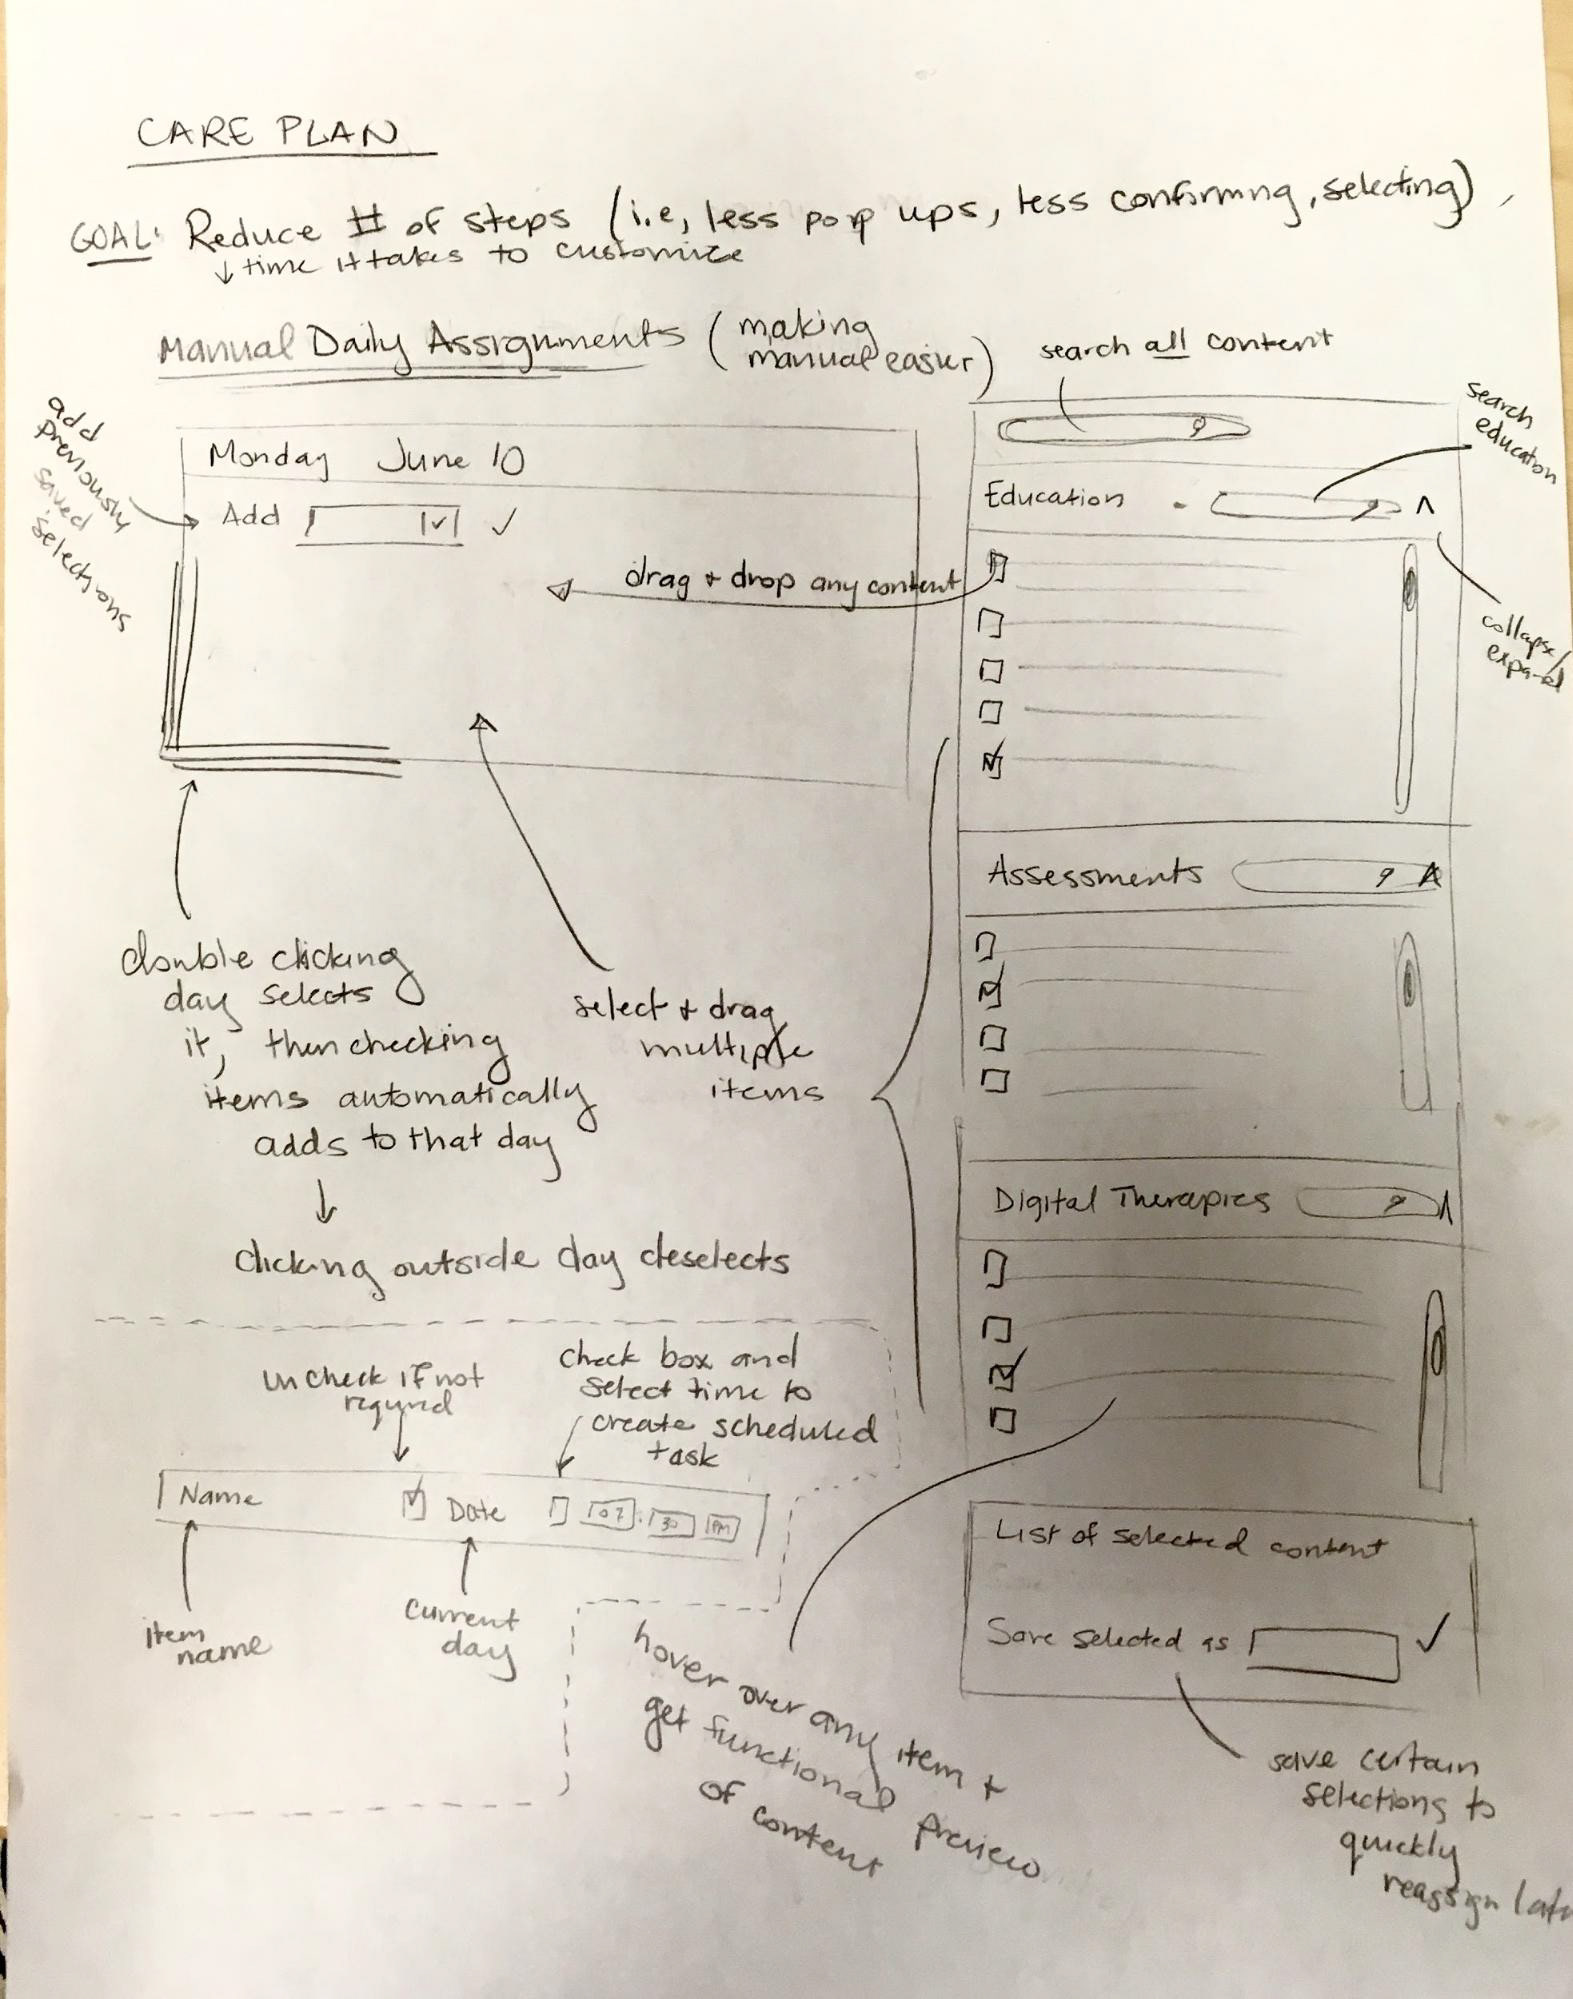 CARE PLAN
GOAL: Reduce # of steps (i.e, less pop ups, less confirming, selecting),
↓ time it takes to customize
Manual Daily Assignments (making
manual easier)
search all content
search
education
add
previously
saved
selections
Monday June 10
Add
Education
drag + drop any content
collapse/
expand
Assessments
double clicking
day selects
it, then checking
items automatically
adds to that day
↓
clicking outside day deselects
select + drag
multiple
items
Digital Therapies
uncheck if not
required
check box and
select time to
create scheduled
task
Name
Date
07 : 30 PM
item
name
current
day
List of selected content
Save selected as
hover over any item +
get functional preview
of content
save certain
selections to
quickly
reassign